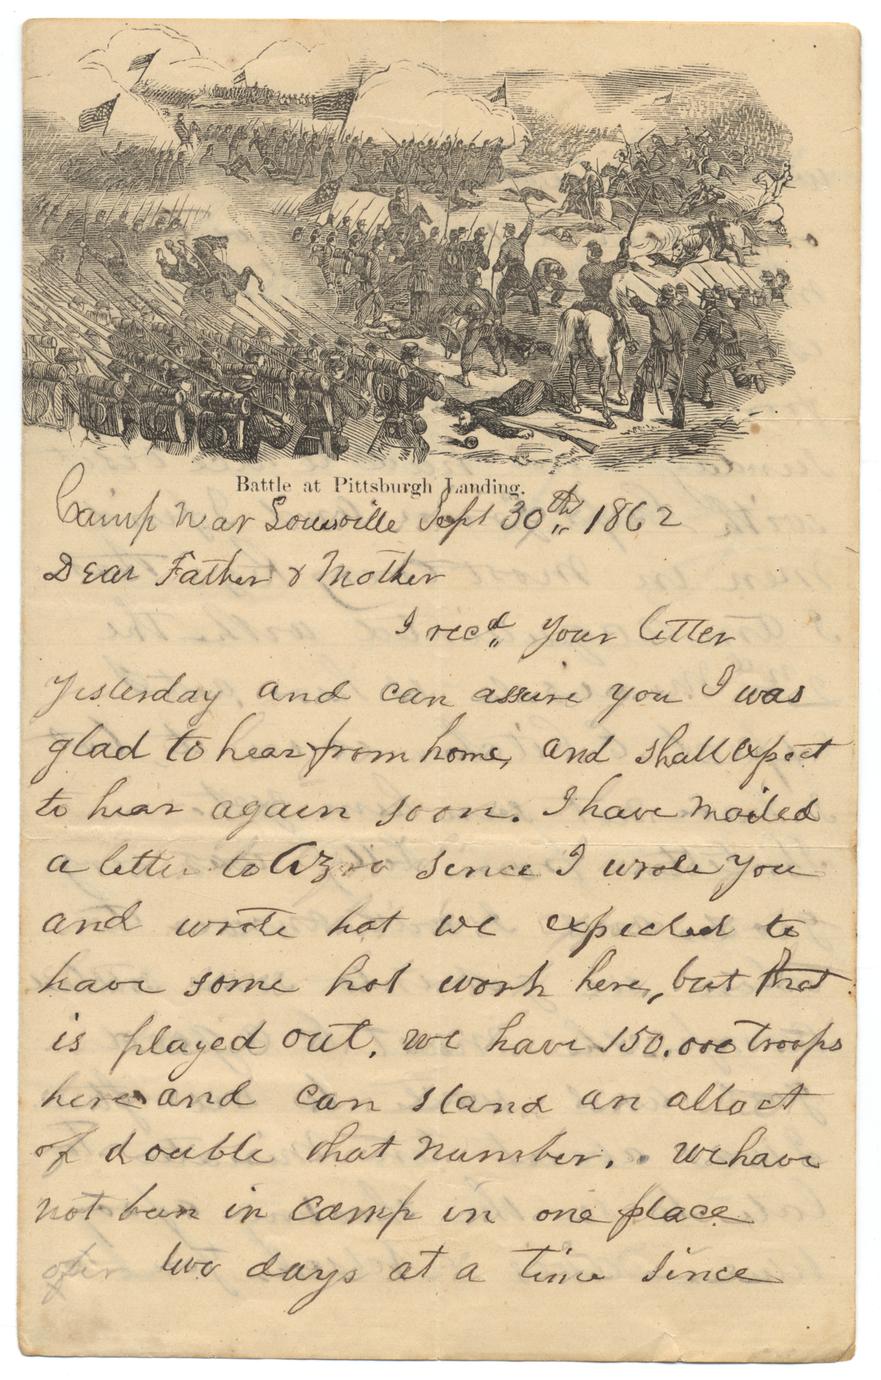 Battle at Pittsburgh Landing.
Camp near Louisville Sept 30th 1862
Dear Father & Mother
I recd your letter
yesterday and can assure you I was
glad to hear from home, and shall expect
to hear again soon. I have mailed
a letter to Azro since I wrote you
and wrote hat we expected to
have some hot work here, but that
is played out. we have 150.000 troops
here and can stand an attact
of double that number. . we have
not ben in camp in one place
over two days at a time since